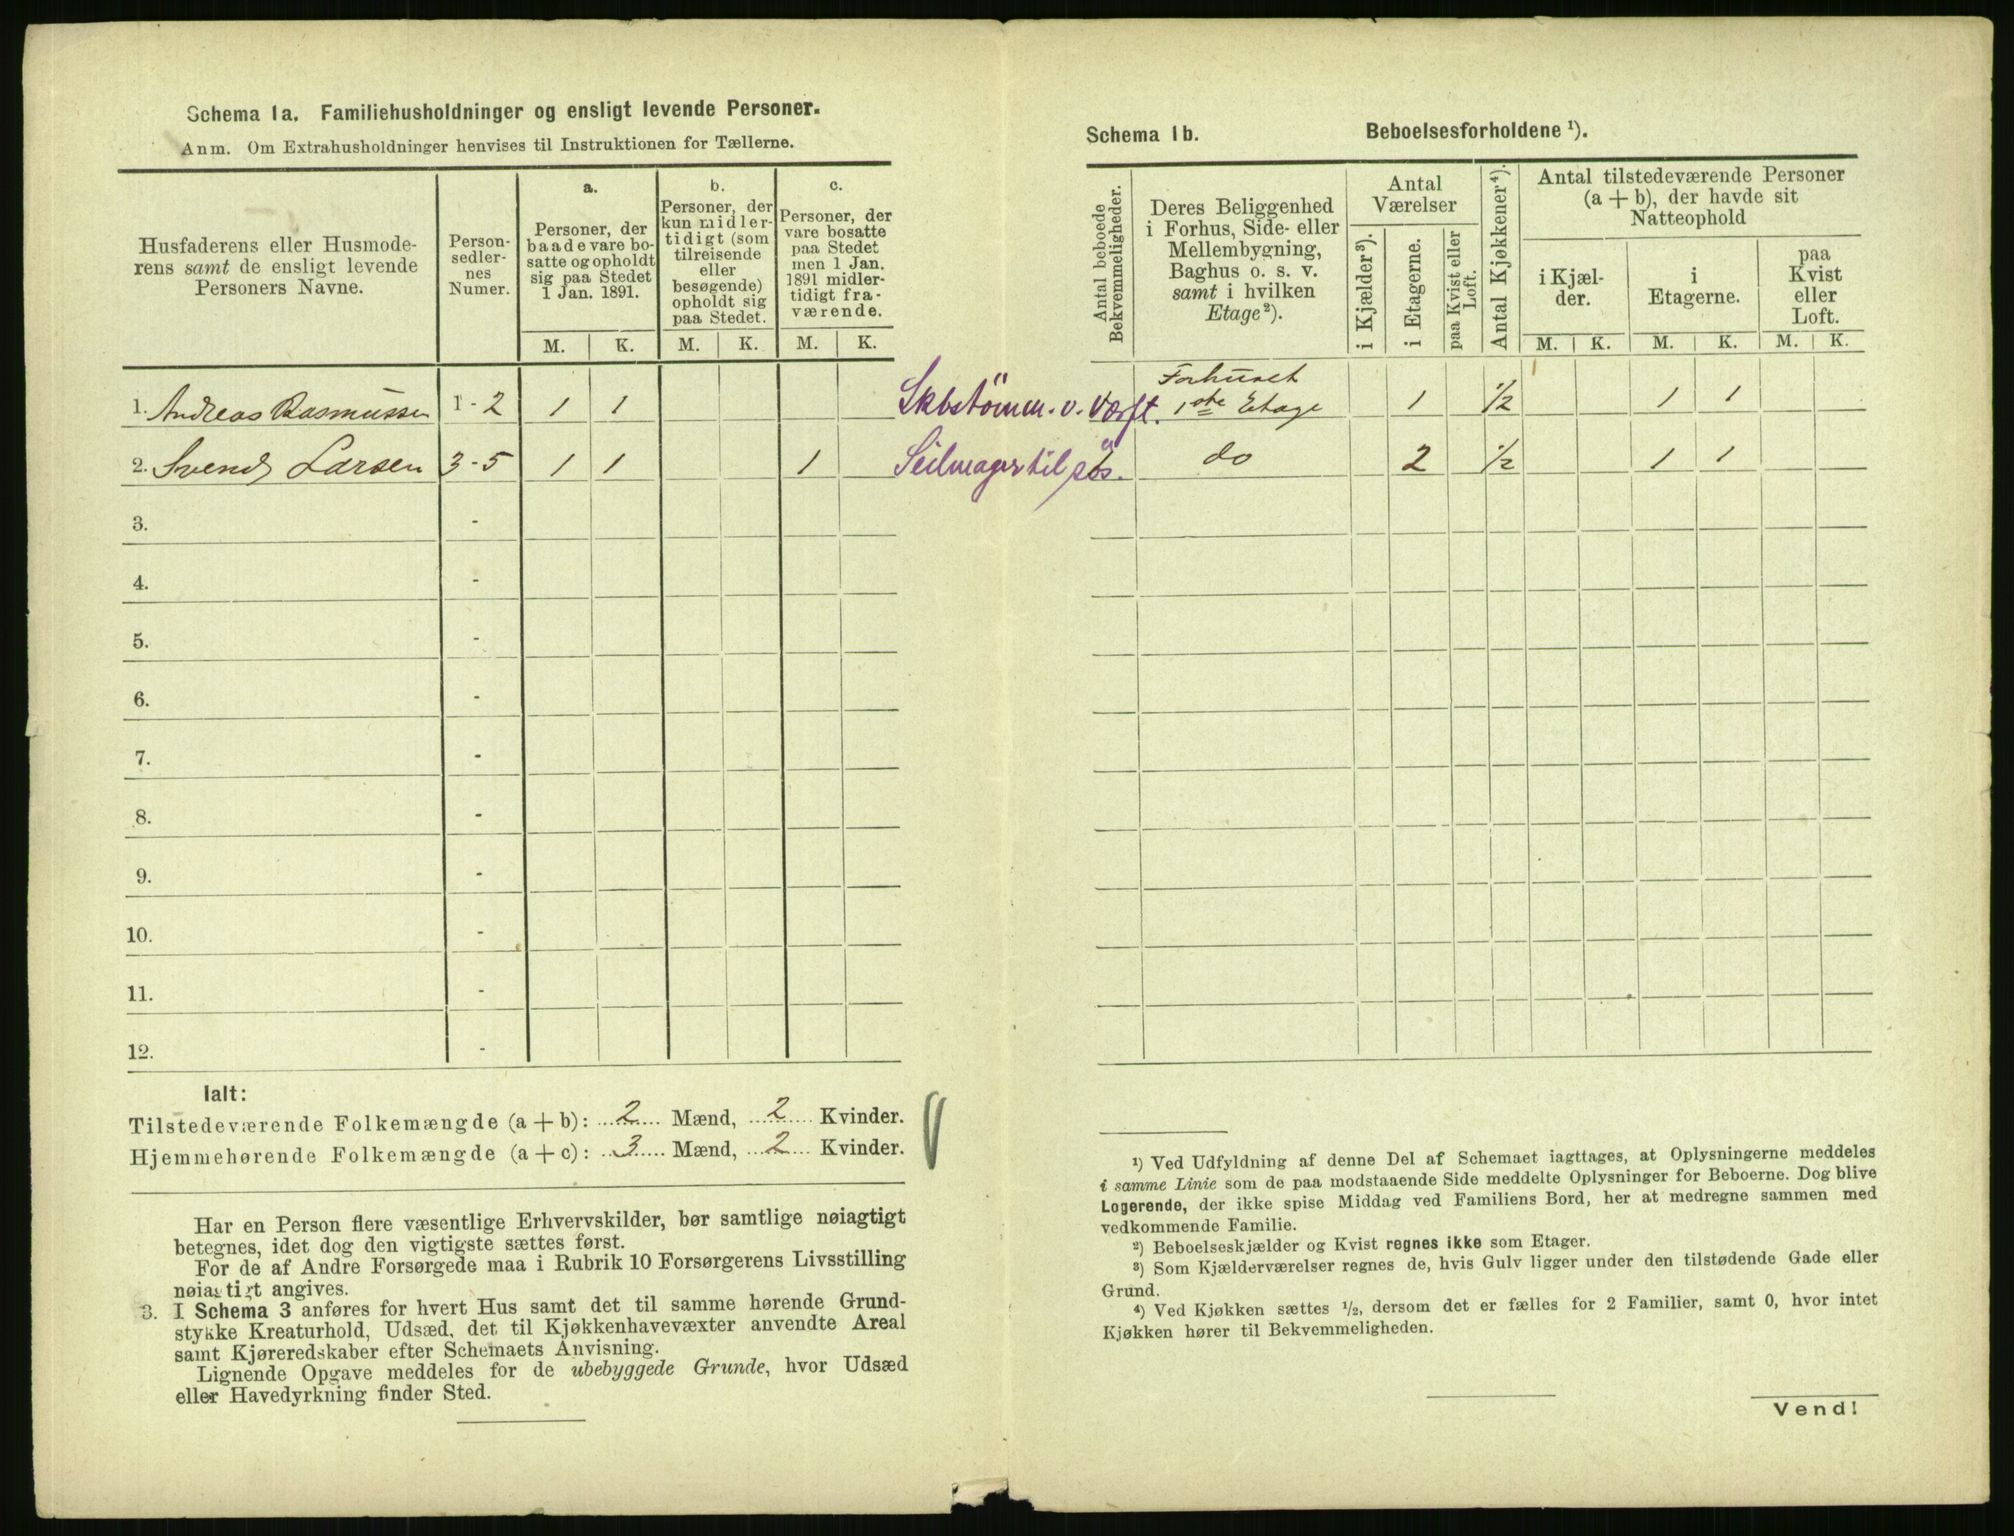 Schema 1a. Familiehusholdninger og ensligt levende Personer.
Anm. Om Extrahusholdninger henvises til Instruktionen for Tællerne.
Husfaderens eller Husmode-
rens samt de ensligt levende
Personers Navne.
Person-
sedler-
nes
Numer.
a.
Personer, der
baade vare bo-
satte og opholdt
sig paa Stedet
1 Jan. 1891.
b.
Personer, der
kun midler-
tidigt (som
tilreisende
eller
besøgende)
opholdt sig
paa Stedet.
c.
Personer, der
vare bosatte
paa Stedet
men 1 Jan.
1891 midler-
tidigt fra-
værende.
M. K. M. K. M. K.
1. Andreas Rasmussen 1-2 1 1
2. Svend Larsen 3-5 1 1 1
3. -
4. -
5. -
6. -
7. -
8. -
9. -
10. -
11. -
12. -
Ialt:
Tilstedeværende Folkemængde (a + b): 2 Mænd, 2 Kvinder.
Hjemmehørende Folkemængde (a + c): 3 Mænd, 2 Kvinder.
Har en Person flere væsentlige Erhvervskilder, bør samtlige nøiagtigt
betegnes, idet dog den vigtigste sættes først.
For de af Andre Forsørgede maa i Rubrik 10 Forsørgerens Livsstilling
nøiagtigt angives.
3. I Schema 3 anføres for hvert Hus samt det til samme hørende Grund-
stykke Kreaturhold, Udsæd, det til Kjøkkenhavevæxter anvendte Areal
samt Kjøreredskaber efter Schemaets Anvisning.
Lignende Opgave meddeles for de ubebyggede Grunde, hvor Udsæd
eller Havedyrkning finder Sted.
Schema 1b. Beboelsesforholdene ¹).
Antal beboede
Bekvemmeligheder.
Deres Beliggenhed
i Forhus, Side- eller
Mellembygning,
Baghus o. s. v.
samt i hvilken
Etage²).
Antal
Værelser
i Kjælder³).
i Etagerne.
paa Kvist eller
Loft.
Antal Kjøkkener⁴).
Antal tilstedeværende Personer
(a + b), der havde sit
Natteophold
i Kjæl-
der.
i
Etagerne.
paa
Kvist
eller
Loft.
M. K. M. K. M. K.
Skbstömm. v. Værft. Forhuset
1ste Etage 1 1/2 1 1
Seilmager til søs. do 2 1/2 1 1
¹) Ved Udfyldning af denne Del af Schemaet iagttages, at Oplysningerne meddeles
i samme Linie som de paa modstaaende Side meddelte Oplysninger for Beboerne. Dog blive
Logerende, der ikke spise Middag ved Familiens Bord, her at medregne sammen med
vedkommende Familie.
²) Beboelseskjælder og Kvist regnes ikke som Etager.
³) Som Kjælderværelser regnes de, hvis Gulv ligger under den tilstødende Gade eller
Grund.
⁴) Ved Kjøkken sættes 1/2, dersom det er fælles for 2 Familier, samt 0, hvor intet
Kjøkken hører til Bekvemmeligheden.
Vend!